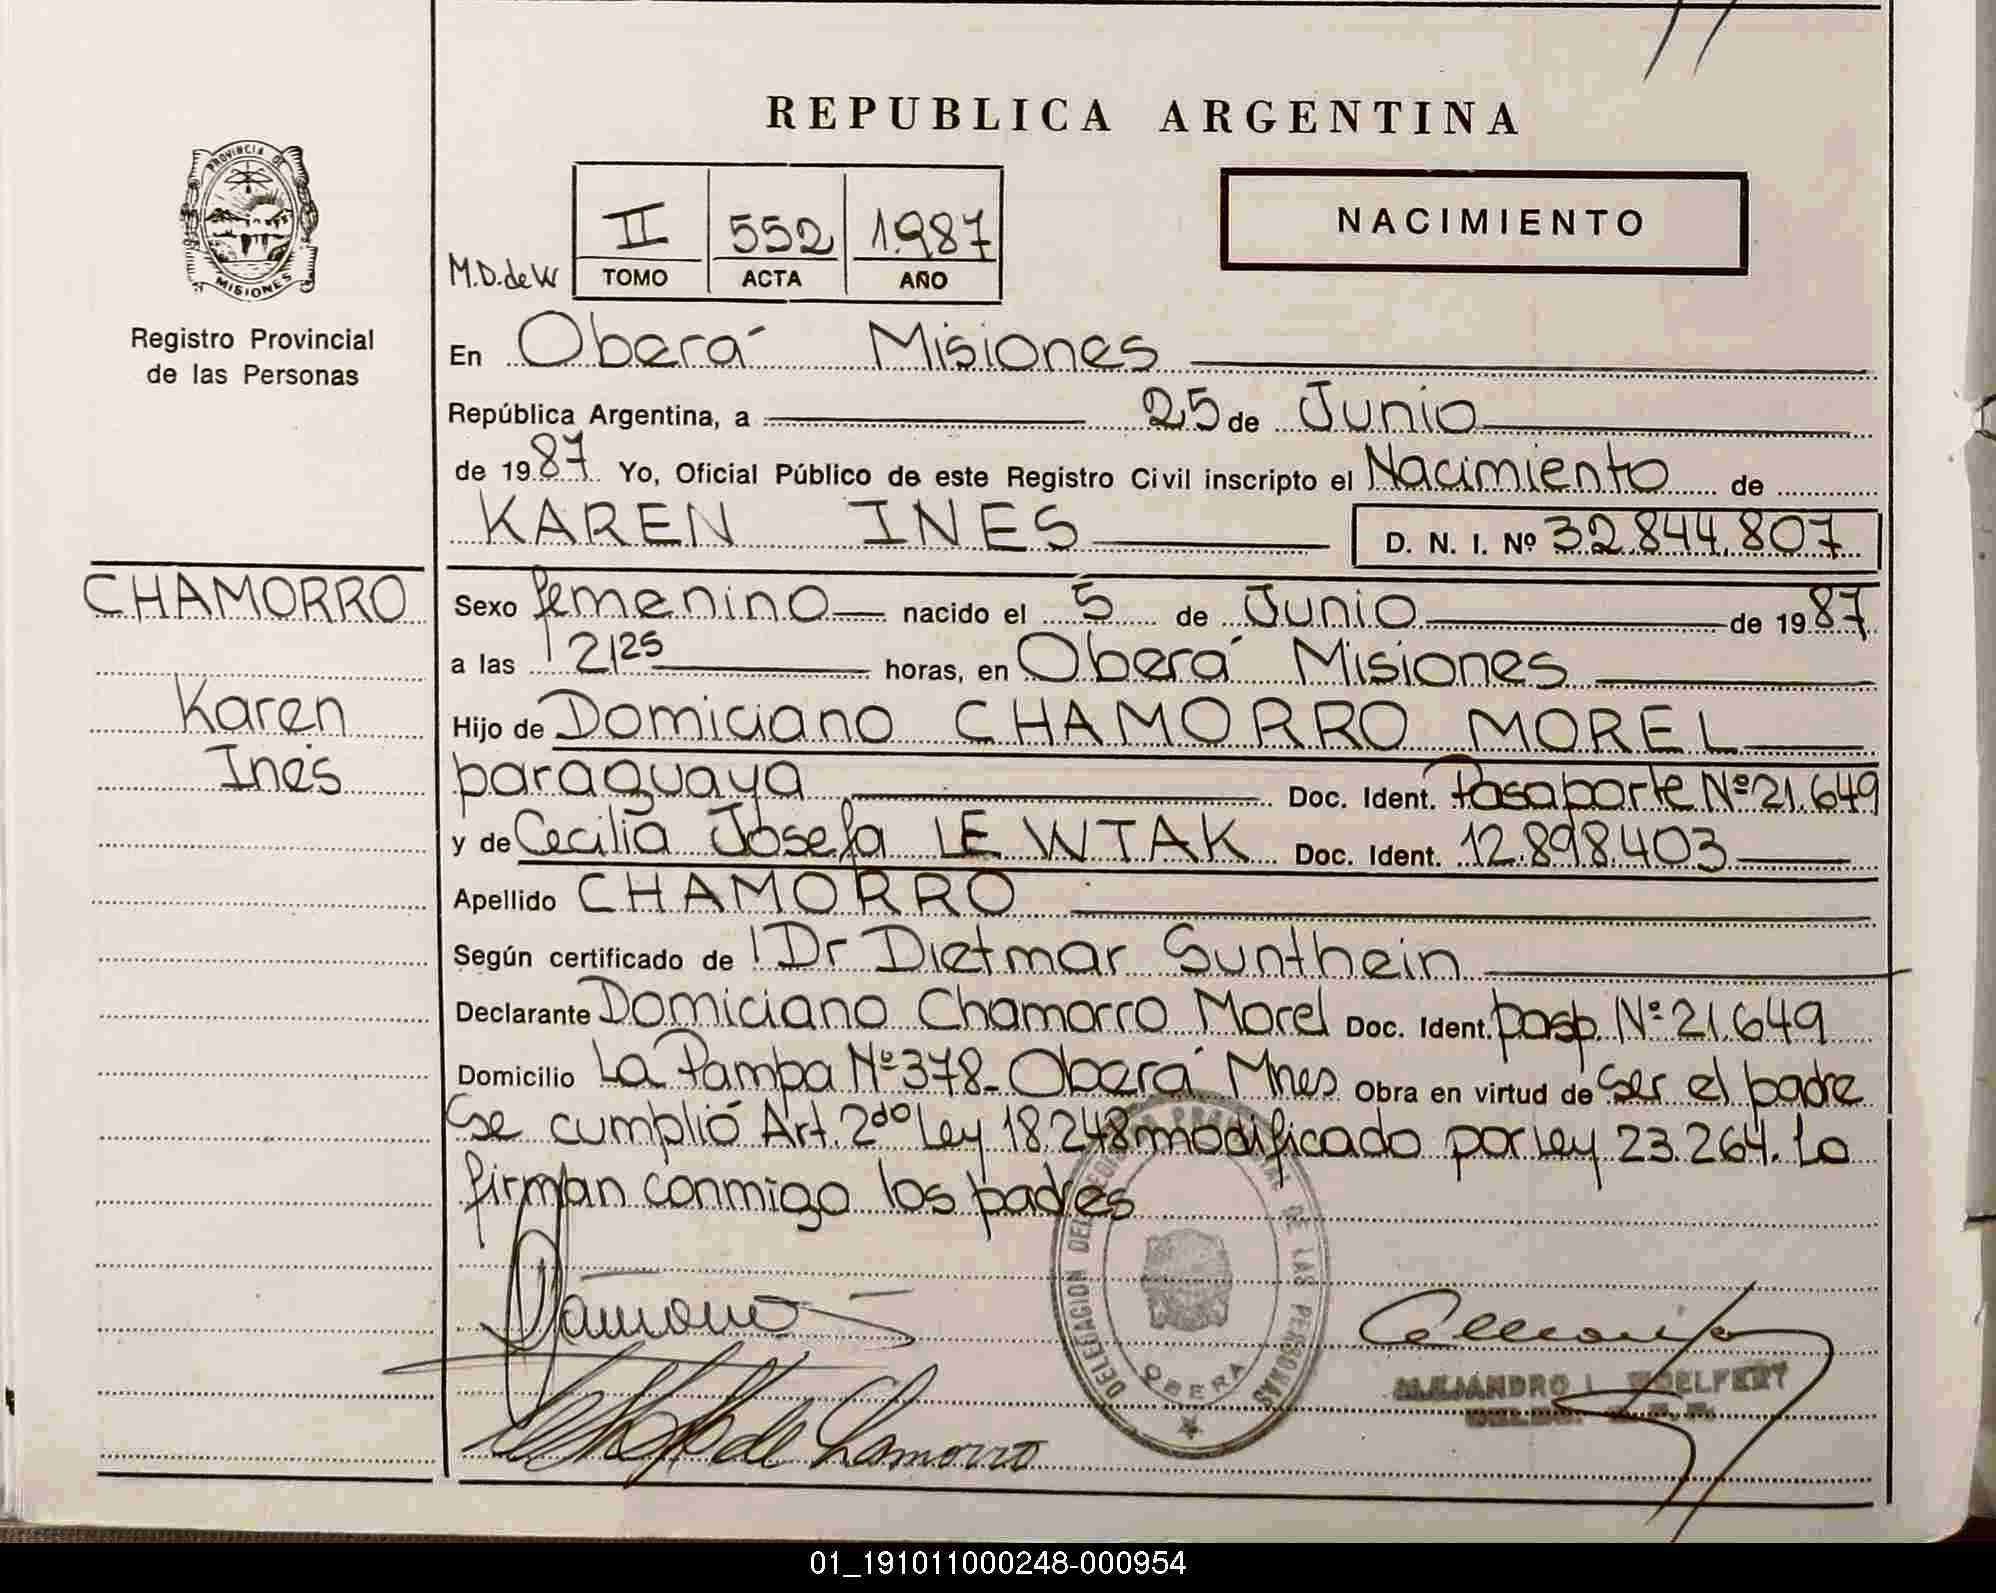 REPUBLICA ARGENTINA
PROVINCIA DE
MISIONES
Registro Provincial
de las Personas
M.D.deW
II 552 1.987
TOMO ACTA AÑO
NACIMIENTO
En Oberá Misiones
República Argentina, a 25 de Junio
de 1987 Yo, Oficial Público de este Registro Civil inscripto el Nacimiento de
KAREN INES D. N. I. Nº 32.844.807
CHAMORRO
Karen
Inés
Sexo femenino nacido el 5 de Junio de 1987
a las 12,25 horas, en Oberá Misiones
Hijo de Domiciano CHAMORRO MOREL
paraguaya Doc. Ident. Pasaporte Nº 21.649
y de Cecilia Josefa LEWTAK Doc. Ident. 12.898.403
Apellido CHAMORRO
Según certificado de Dr Dietmar Sunthein
Declarante Domiciano Chamorro Morel Doc. Ident. pasp. Nº 21.649
Domicilio La Pampa Nº 378- Oberá Mnes Obra en virtud de ser el padre
Se cumplió Art. 2do Ley 18.248 modificado por ley 23.264. Lo
firman conmigo los padres
DELEGACION DEL REGISTRO PROVINCIAL DE LAS PERSONAS
OBERA
de Chamorro
ALEJANDRO L. WOELFERT
01_191011000248-000954